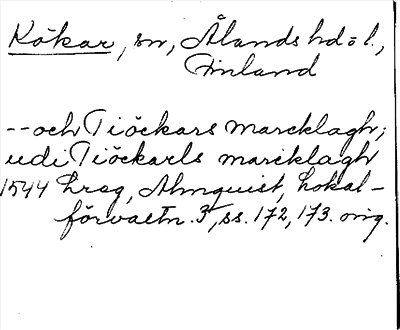 Kökar, sn, Ålands hd o l.,
Finland
-- och Tiöckars marcklagh;
udi Tiöckarls marcklagh
1544 hrag, Almquist, Lokal-
förvaltn. 3, ss. 172, 173. orig.